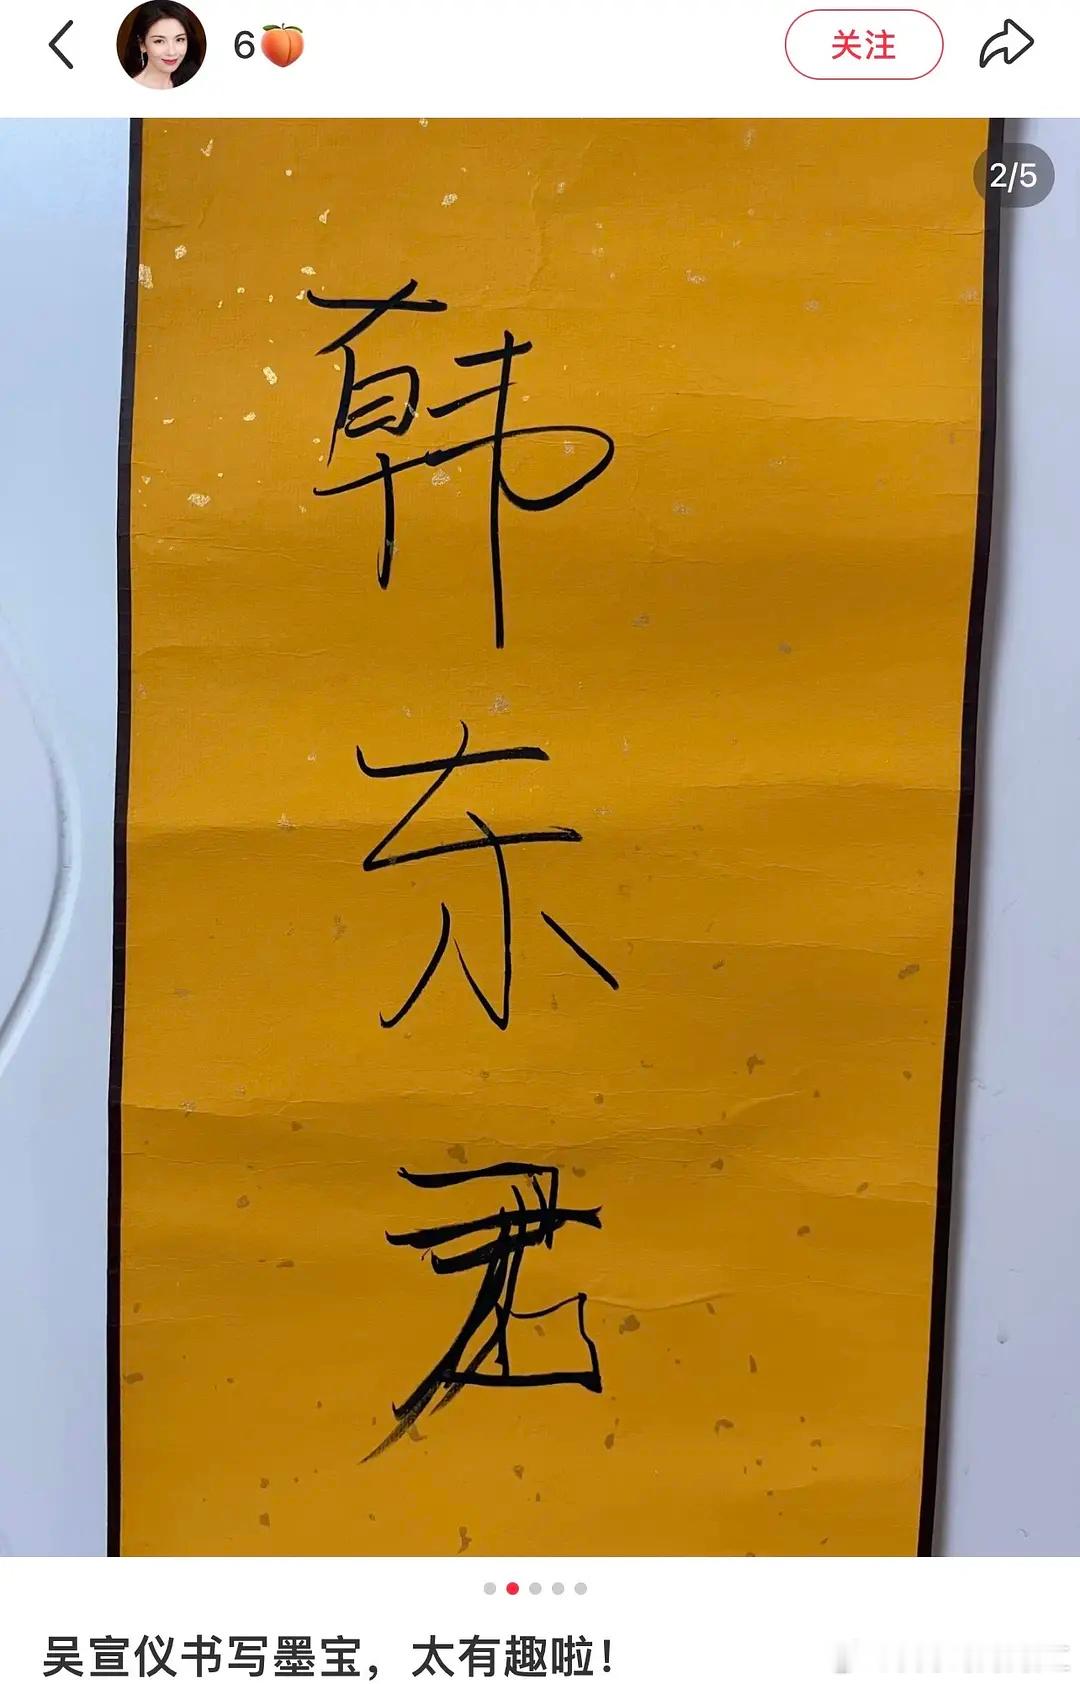 6🍑
关注
2/5
韩
东
君
吴宣仪书写墨宝，太有趣啦！